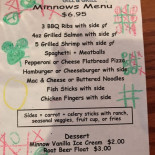 Minnows Menu
$6.95
3 BBQ Ribs with side gf
4oz Grilled Salmon with side gf
5 Grilled Shrimp with side gf
Spaghetti & Meatballs
Pepperoni or Cheese Flatbread Pizza
Hamburger or Cheeseburger with side
Mac & Cheese or Buttered Noodles
Fish Sticks with side
Chicken Fingers with side
Sides - carrot & celery sticks with ranch,
seasonal veggies, fruit cup, or fries
Dessert
Minnow Vanilla Ice Cream $2.00
Root Beer Float $3.00